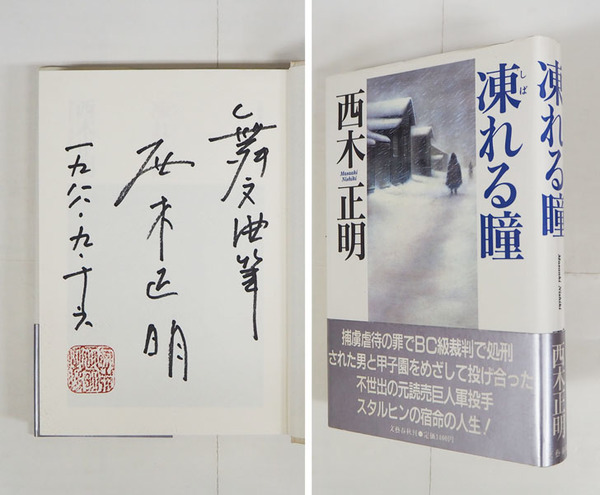 舞文曲筆
西木正明
一九八八・九・十六
凍れる瞳
しば
西木正明
Masaaki Nishiki
捕虜虐待の罪でBC級裁判で処刑
された男と甲子園をめざして投げ合った
不世出の元読売巨人軍投手
スタルヒンの宿命の人生!
文藝春秋刊●定価1400円
凍れる瞳
Masaaki Nishiki
西木正明